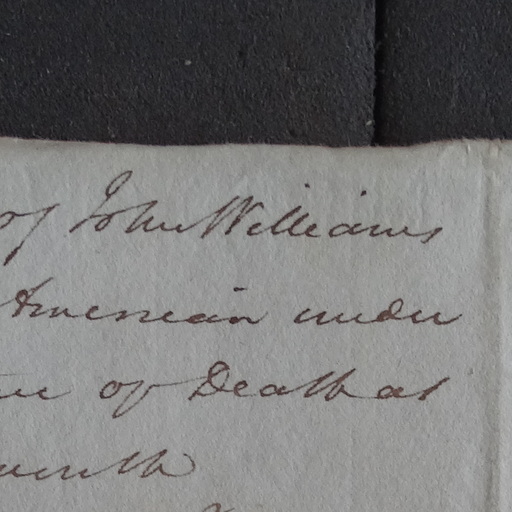 of John Williams
American under
of Death at